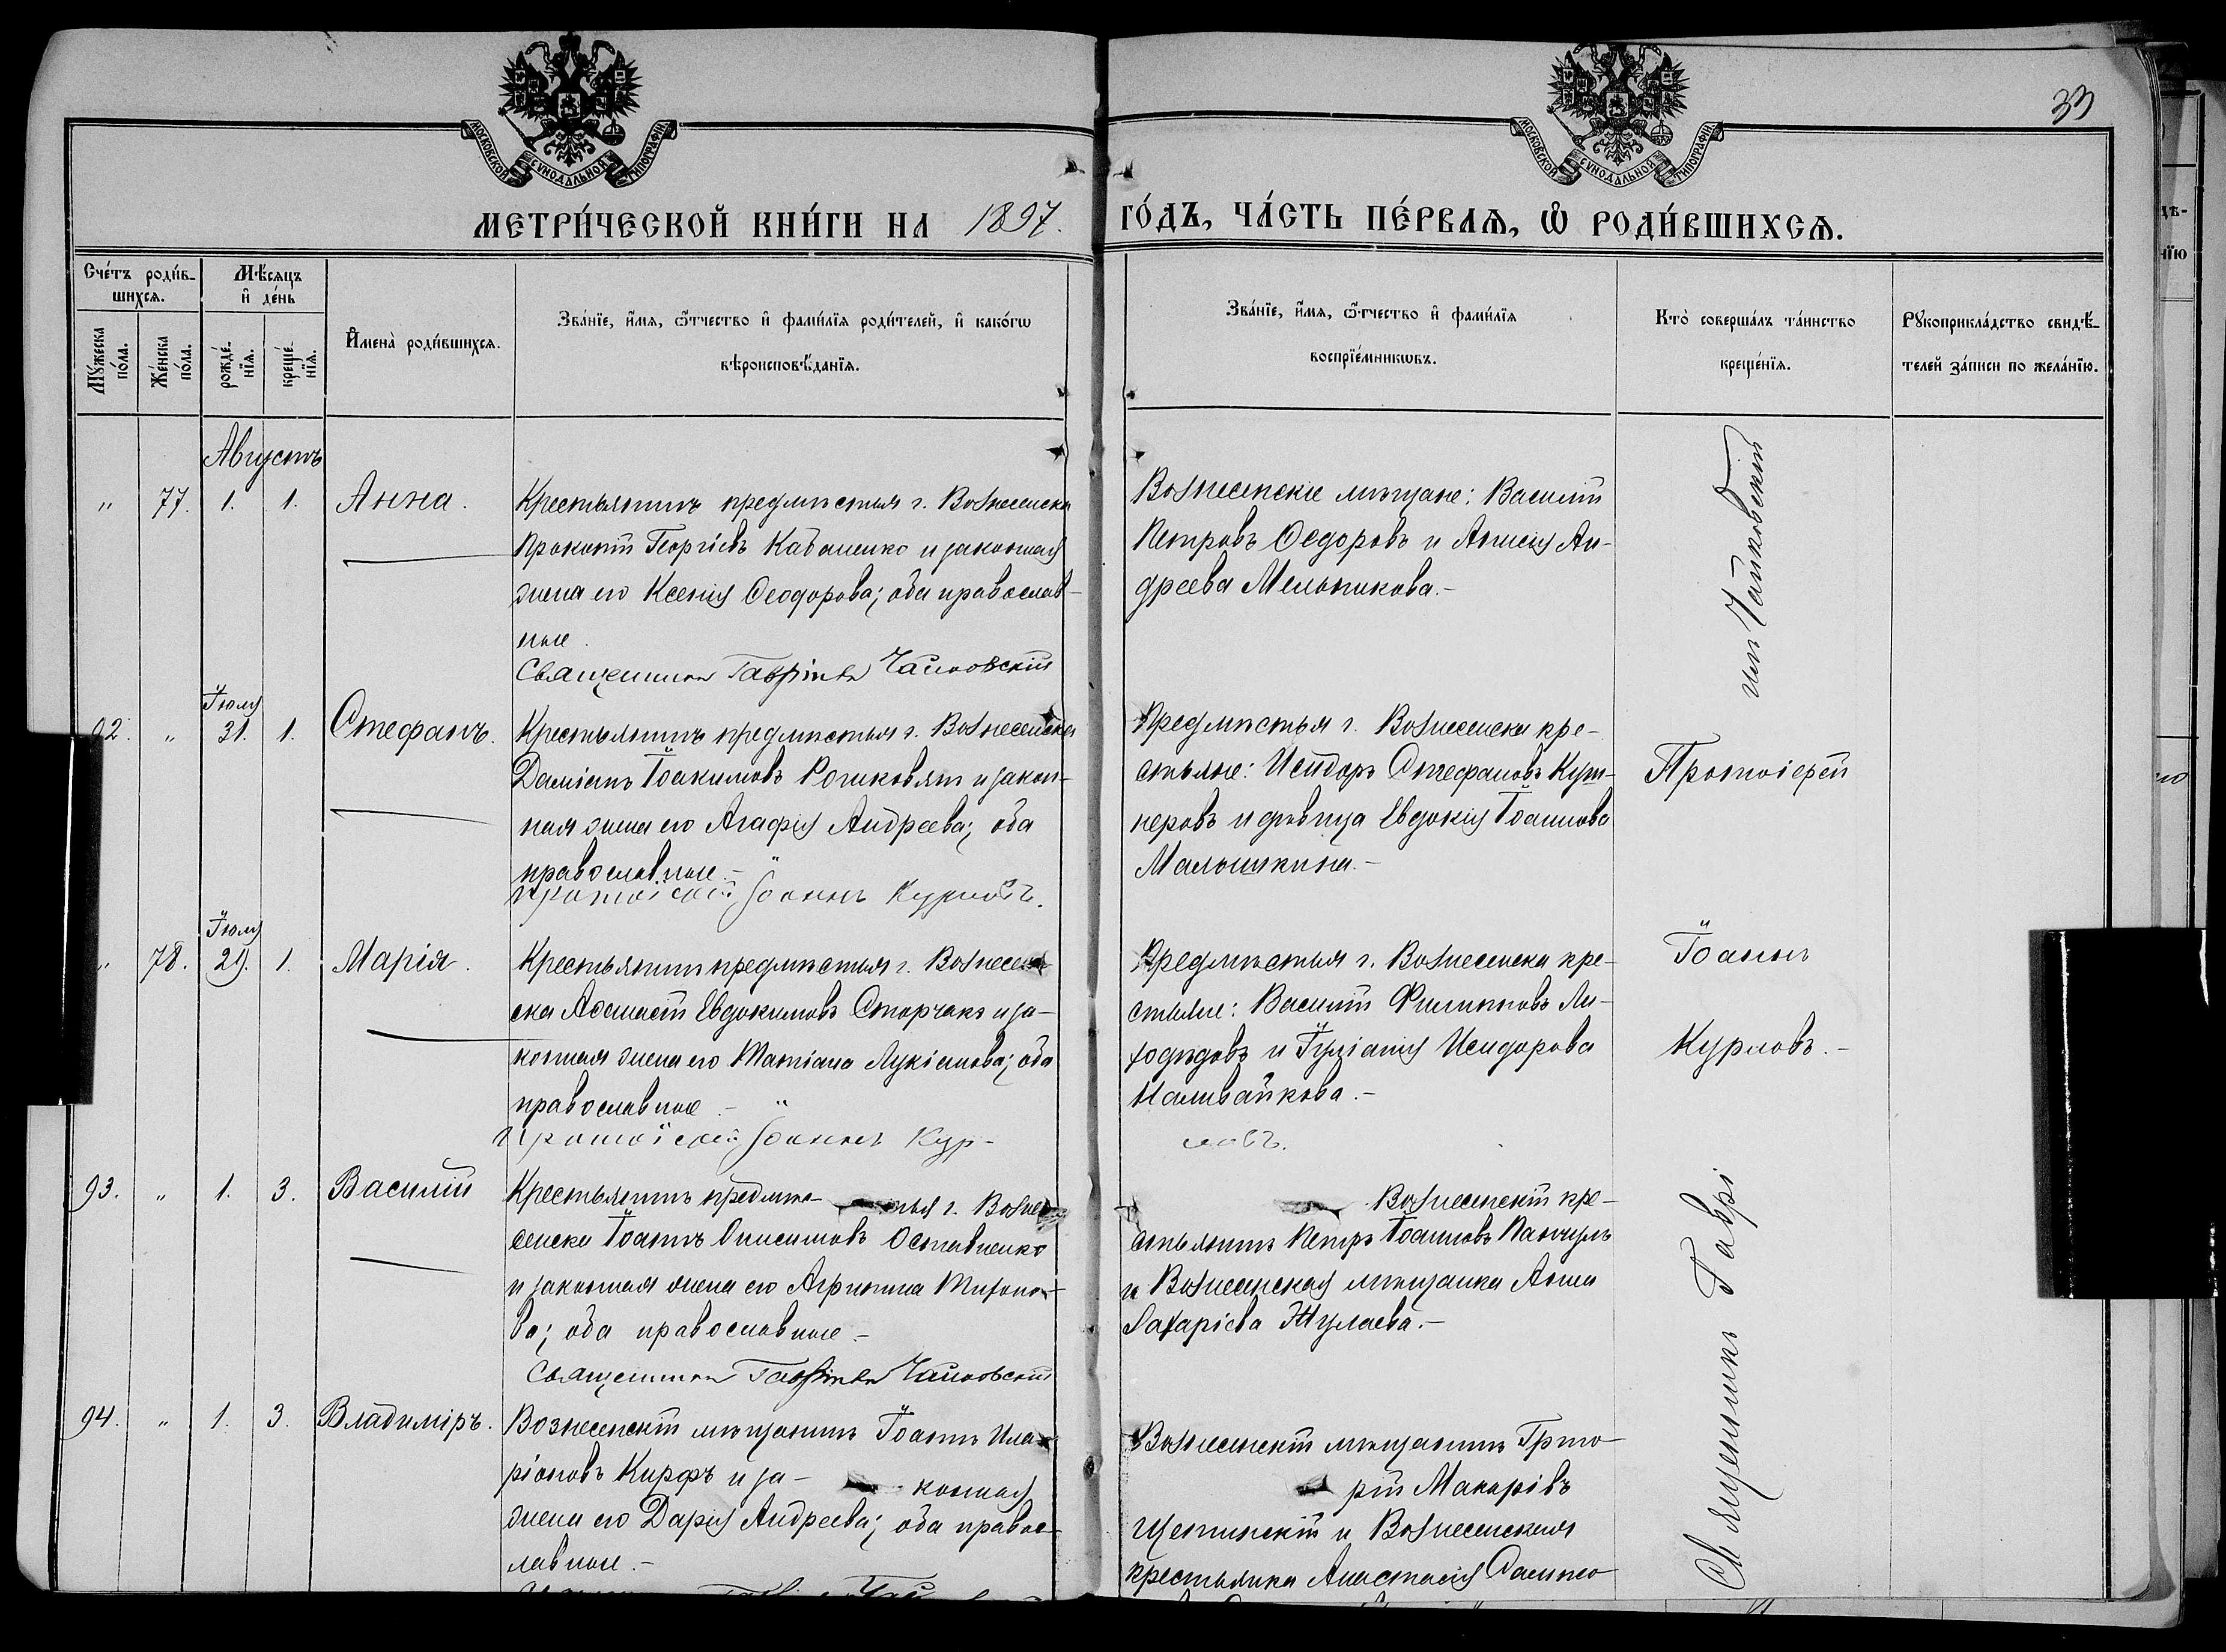 МОСКОВСКОЙ СѴНОДАЛЬНОЙ ТИПОГРАФІИ
МОСКОВСКОЙ СѴНОДАЛЬНОЙ ТИПОГРАФІИ
33
МЕТРИ́ЧЕСКОЙ КНИ́ГИ НА 1897. ГО́ДЪ, ЧА́СТЬ ПЕ́РВАѦ, Ѡ҆ РОДИ́ВШИХСѦ.
Сче́тъ роди́в-
шихсѧ.
Мꙋ́жеска по́ла.
Же́нска по́ла.
Мѣ́сѧцъ
и҆ де́нь
рожде́-
нїѧ.
креще́-
нїѧ.
И҆мена̀ роди́вшихсѧ.
Зва́нїе, и҆́мѧ, ѻ҆́тчество и҆ фами́лїѧ роди́телей, и҆ како́гѡ
вѣроисповѣ́данїѧ.
Зва́нїе, и҆́мѧ, ѻ҆́тчество и҆ фами́лїѧ
воспрїе́мникѡвъ.
Кто̀ соверша́лъ та́инство
креще́нїѧ.
Рꙋкоприкла́дство свидѣ́-
телей за́писи по жела́нїю.
Августъ
" 77. 1. 1. Анна.
Крестьянинъ предмѣстья г. Вознесенска
Прокопій Георгіевъ Кабаненко и законная
жена его Ксенія Ѳеодорова; оба православ-
ные.
Священникъ Гавріилъ Чайковскій
Вознесенскіе мѣщане: Василій
Петровъ Ѳедоровъ и Анисія Ан-
дреева Мельникова.-
Іюля
92. " 31. 1. Стефанъ.
Крестьянинъ предмѣстья г. Вознесенска
Даміанъ Іоакимовъ и закон-
ная жена его Агафія Андреева; оба
православные.-
Протоіерей Іоаннъ Курловъ.
Предмѣстья г. Вознесенска кре-
стьяне: Исидоръ Стефановъ Куш-
неровъ и дѣвица Евдокія Іоаннова
Малышкина.-
Іюля
" 78. 29. 1. Марія.
Крестьянинъ предмѣстья г. Вознесен-
ска Аѳанасій Евдокимовъ Сторчакъ и за-
конная жена его Татіана Лукіанова; оба
православные.-
Протоіерей Іоаннъ Кур-
ловъ.
Предмѣстья г. Вознесенска кре-
стьяне: Василій Филипповъ Ли-
ходѣдовъ и Іуліанія Исидорова
Наливайкова.-
Протоіерей
Іоаннъ
Курловъ.-
93. " 1. 3. Василій
Крестьянинъ предмѣ-стья г. Возне-
сенска Іоаннъ Онисимовъ Оставненко
и законная жена его Агриппина Тихоно-
ва; оба православные.-
Священникъ Гавріилъ Чайковскій
Вознесенскій кре-
стьянинъ Петръ Іоанновъ Панчулъ
и Вознесенская мѣщанка Анна
Захаріева Жулаева.-
94. " 1. 3. Владиміръ.
Вознесенскій мѣщанинъ Іоаннъ Ила-
ріоновъ Кирфъ и за- конная
жена его Дарія Андреева; оба правос-
лавные.-
Вознесенскій мѣщанинъ Григо-
рій Макаріевъ
Щепинскій и Вознесенская
крестьянка Анастасія
Священникъ Гаврі
илъ Чайковскій